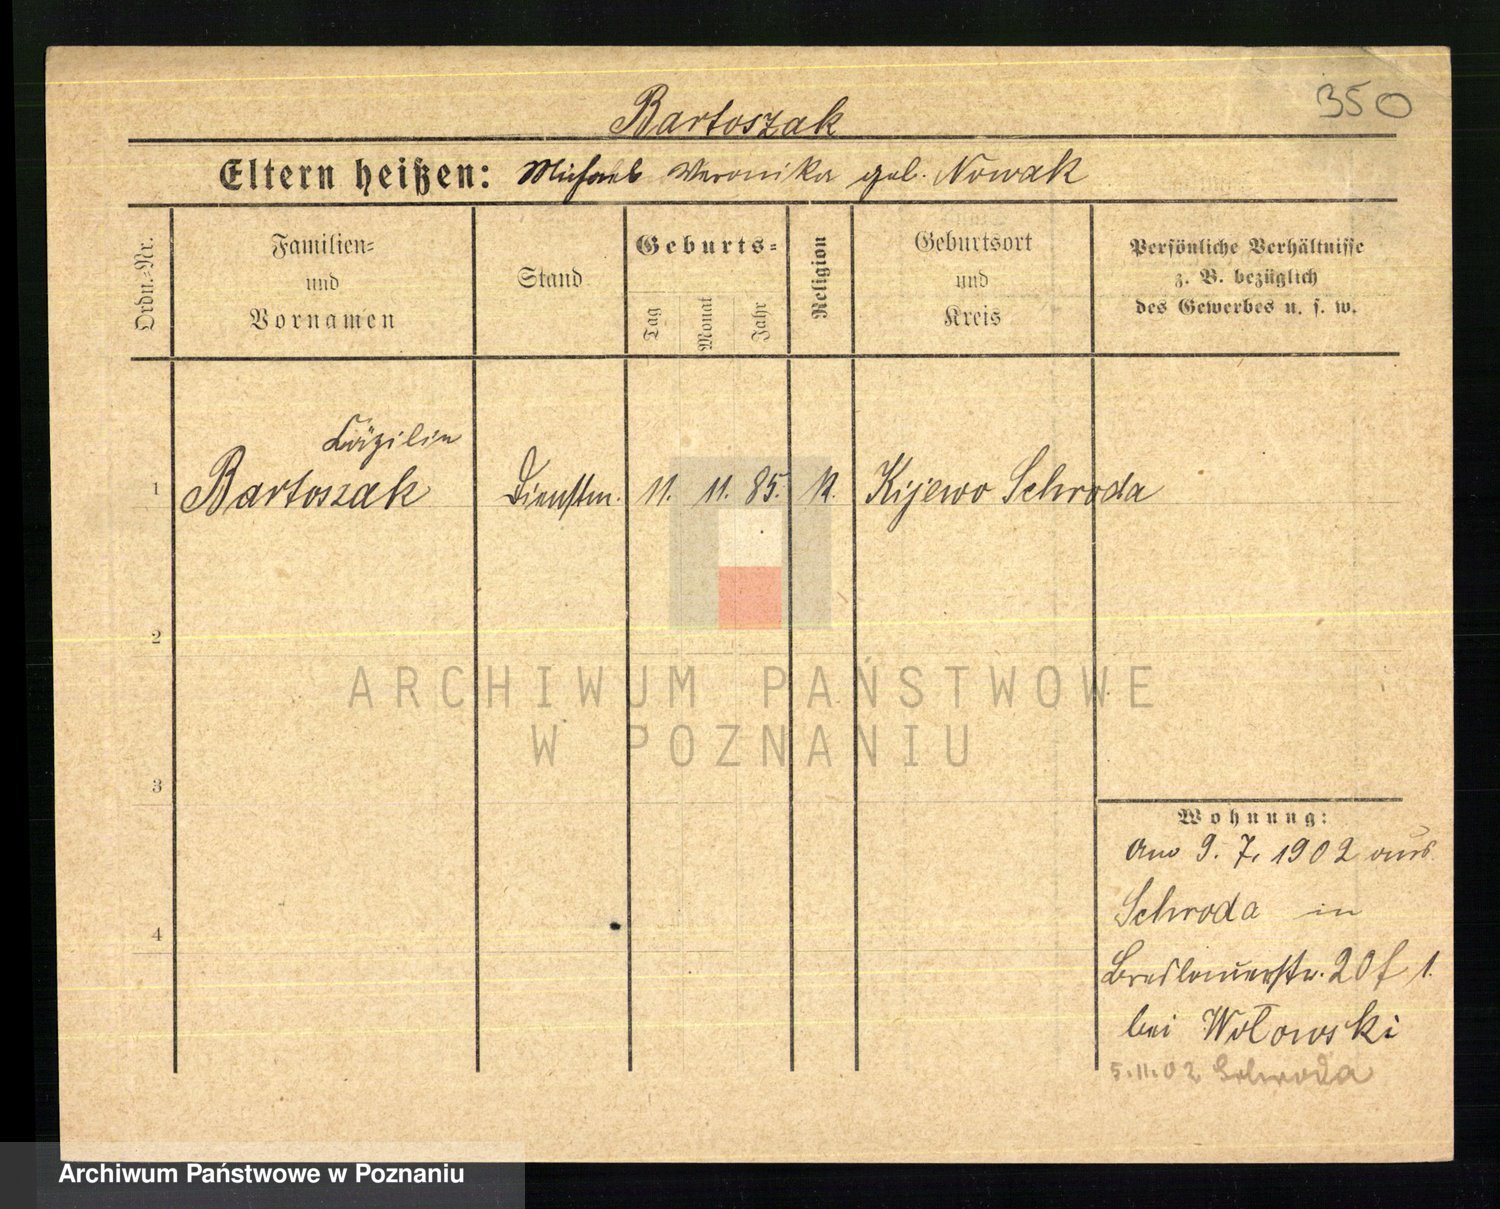 350
Bartoszak
Eltern heißen: Michael Veronika geb. Nowak
Ordn.-Nr.
Familien-
und
Vornamen
Stand
Geburts-
Tag
Monat
Jahr
Religion
Geburtsort
und
Kreis
Persönliche Verhältnisse
z. B. bezüglich
des Gewerbes u. s. w.
Cäzilie
1 Bartoszak Dienstm. 11. 11. 85. K. Kijewo Schroda
2
ARCHIWUM PAŃSTWOWE
W POZNANIU
3
Wohnung:
Am 9. 7. 1902 aus
Schroda in
4
Breslauerstr. 20 f 1.
bei Wołowski
5.11.02 Schroda
Archiwum Państwowe w Poznaniu